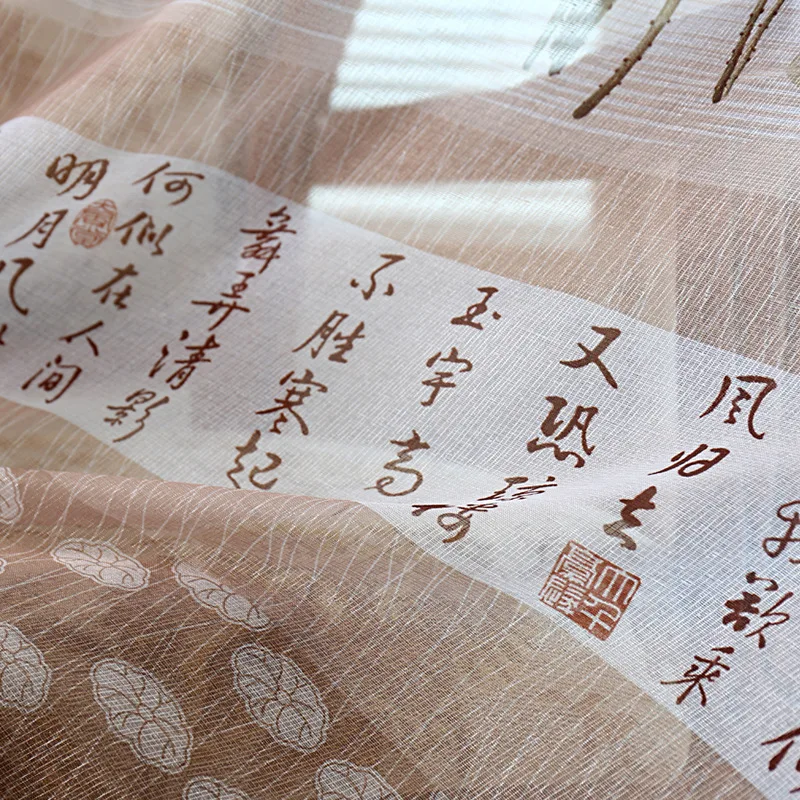 我欲乘
风归去
又恐琼楼
玉宇高
不胜寒起
舞弄清影
何似在人间
明月几